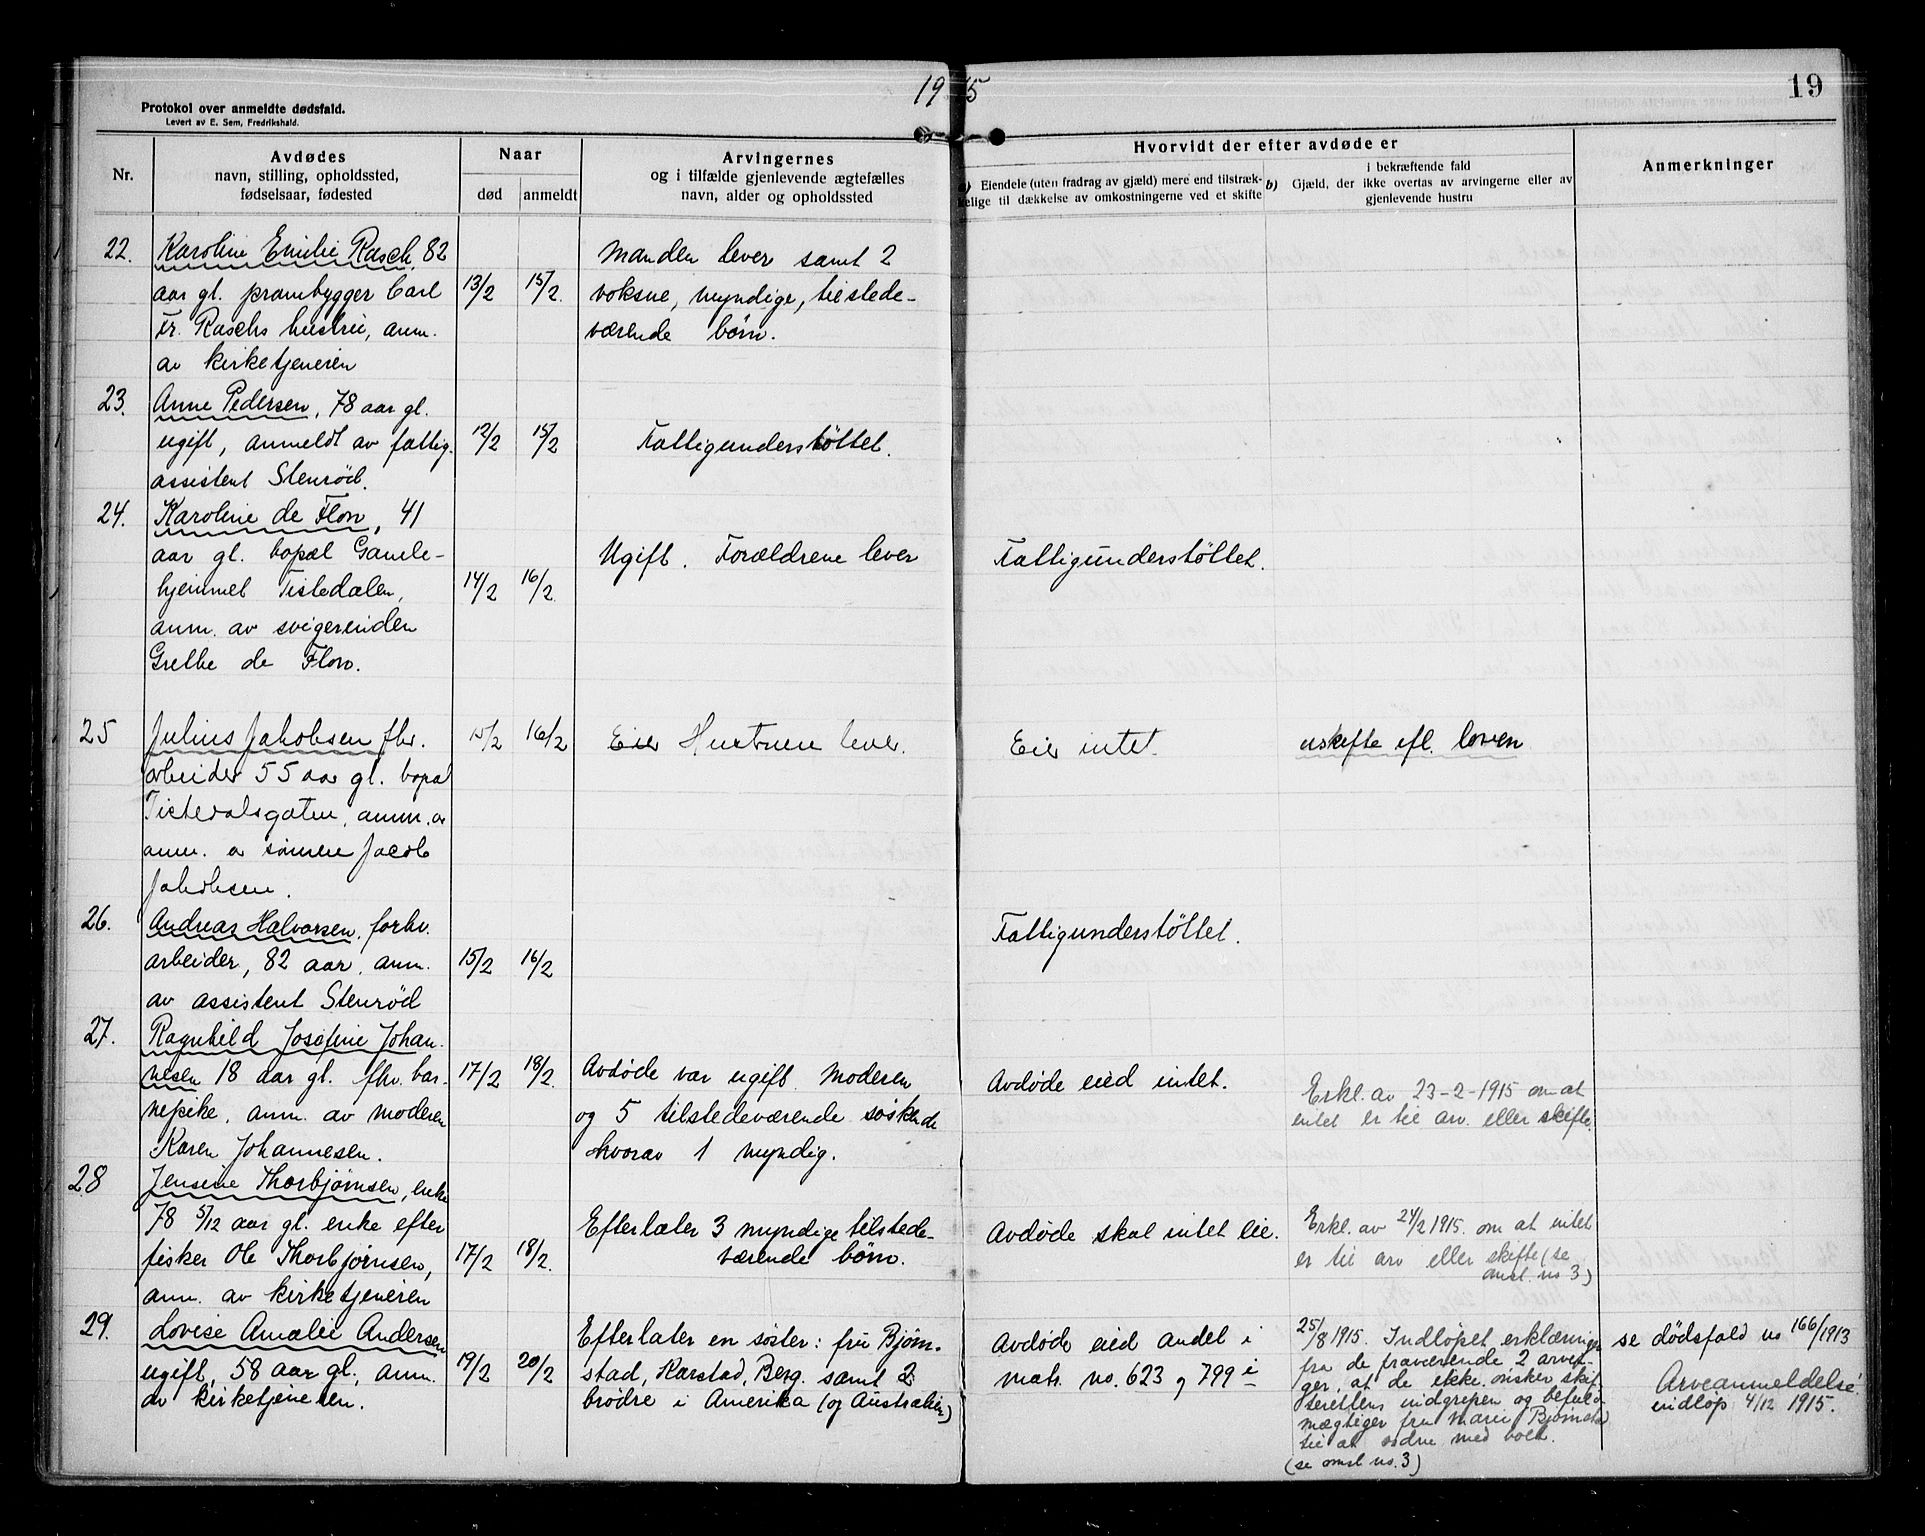 1915
19
Protokol over anmeldte dødsfald.
Levert av E. Sem, Fredrikshald.
Nr.
Avdødes
navn, stilling, opholdssted,
fødselsaar, fødested
Naar
død
anmeldt
Arvingernes
og i tilfælde gjenlevende ægtefælles
navn, alder og opholdssted
Hvorvidt der efter avdøde er
a) Eiendele (uten fradrag av gjæld) mere end tilstræk-
kelige til dækkelse av omkostningerne ved et skifte
i bekræftende fald
b) Gjæld, der ikke overtas av arvingerne eller av
gjenlevende hustru
Anmerkninger
22.
Karoline Emilie Rasch, 82
aar gl. prambygger Carl
Fr. Raschs hustru, anm.
av kirketjeneren
13/2
15/2.
Manden lever samt 2
voksne, myndige, tilstede-
værende børn.
23.
Anne Pedersen, 78 aar gl.
ugift, anmeldt av fattig-
assistent Stenrød.
12/2
15/2
Fattigunderstøttet.
24.
Karoline de Flon, 41
aar gl. bopæl Gamle-
hjemmet Tistedalen,
anm. av svigerinden
Grethe de Flon.
14/2
16/2.
Ugift. Forældrene lever
Fattigunderstøttet.
25
Julius Jakobsen fhv.
arbeider 55 aar gl. bopæl
Tistedalsgaten, anm. av
anm. a sønnen Jacob
Jakobsen.
15/2
16/2
Eier Hustruen lever.
Eier intet.
uskifte efl. loven
26.
Andreas Halvorsen, forhv.
arbeider, 82 aar, anm.
av assistent Stenrød
15/2
16/2
Fattigunderstøttet.
27.
Ragnhild Josefine Johan-
nesen 18 aar gl. fhv. bar-
nepike, anm. av moderen
Karen Johannesen.
17/2
18/2.
Avdøde var ugift. Moderen
og 5 tilstedeværende søskende
hvorav 1 myndig.
Avdøde eied intet.
Erkl. av 23-2-1915 om at
intet er til arv. eller skifte.
28
Jensine Thorbjørnsen, enke
78 5/12 aar gl. enke efter
fisker Ole Thorbjørnsen,
anm. av kirketjeneren
17/2
18/2.
Efterlater 3 myndige tilstede-
værende børn.
Avdøde skal intet eie.
Erkl. av 24/2 1915. om at intet
er til arv eller skifte (se
omsl. no 3)
29.
Lovise Amalie Andersen
ugift, 58 aar gl., anm.
av kirketjeneren.
19/2
20/2
Efterlater en søster: fru Bjørn-
stad, Karstad, Berg. samt 2
brødre i Amerika (og Australien)
Avdøde eied andel i
matr. no. 623 og 799 i
25/8 1915. Indløpet erklæringer
fra de fraværende 2 arvin-
ger, at de ikke ønsker skif-
terettens indgripen og befuld-
mægtiger fru Marie Bjørnstad
til at ordne med boet.
(se omsl no. 3)
se dødsfald no 166/1913
Arveanmeldelse
indløp 4/12 1915.